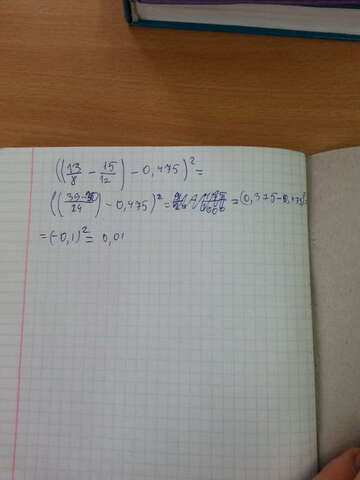 ((13/8 - 15/12) - 0,475)² =
((39-30/24) - 0,475)² = = (0,375-0,475)² =
= (-0,1)² = 0,01